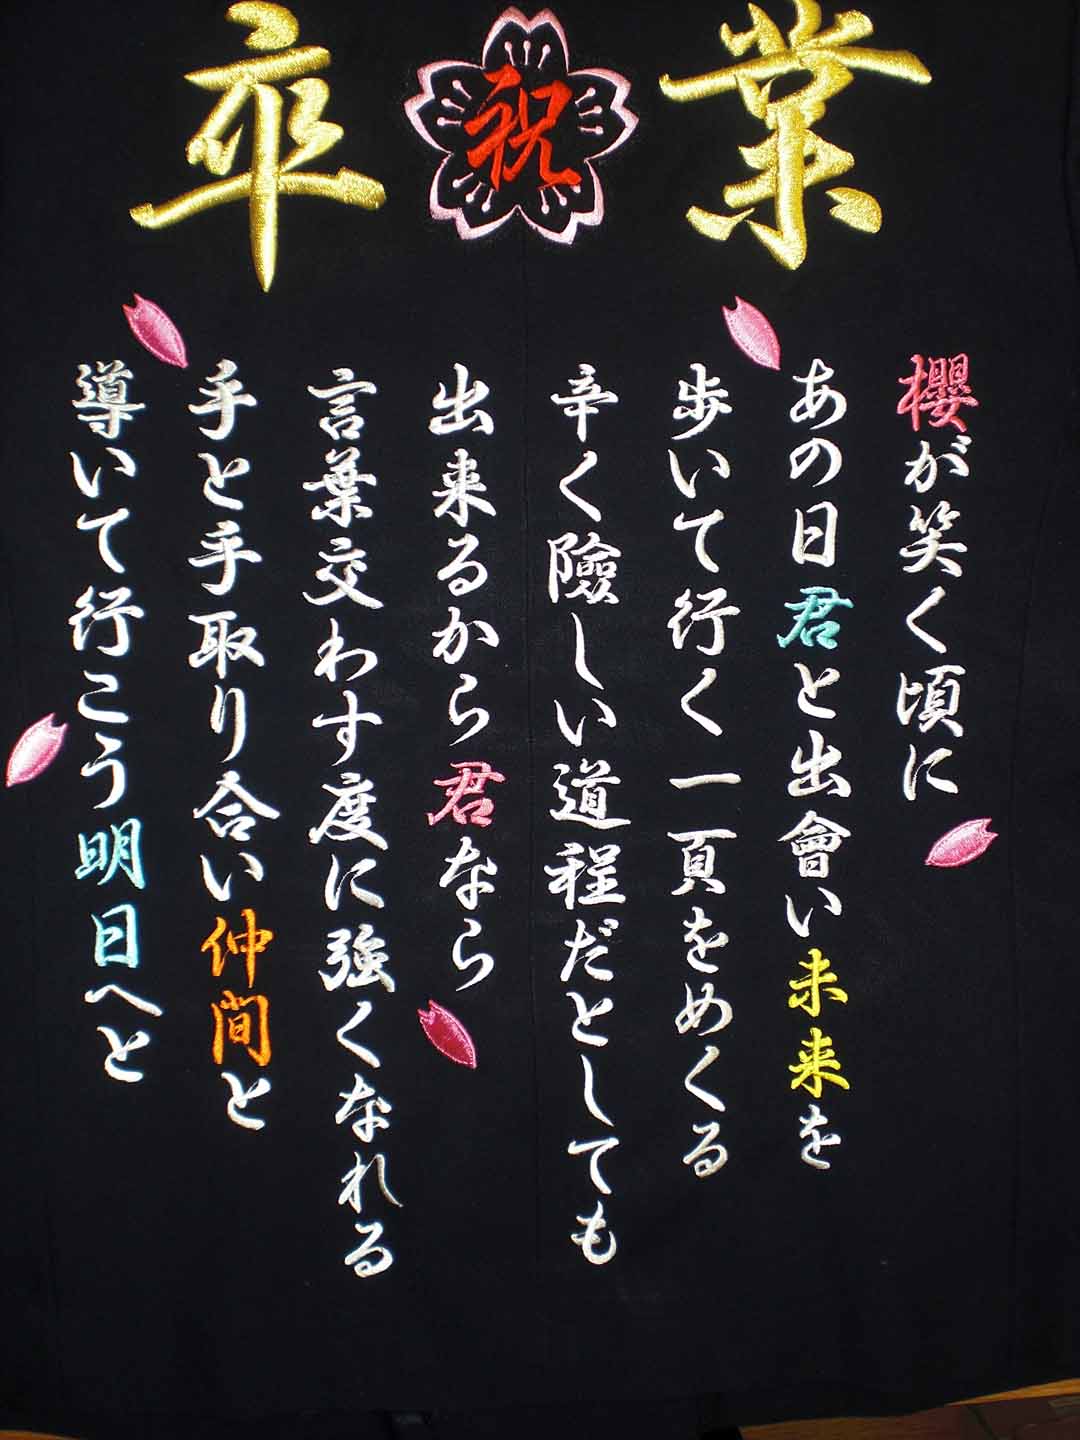 卒祝業
櫻が笑く頃に
あの日君と出會い未来を
歩いて行く一頁をめくる
辛く險しい道程だとしても
出来るから君なら
言葉交わす度に強くなれる
手と手取り合い仲間と
導いて行こう明日へと